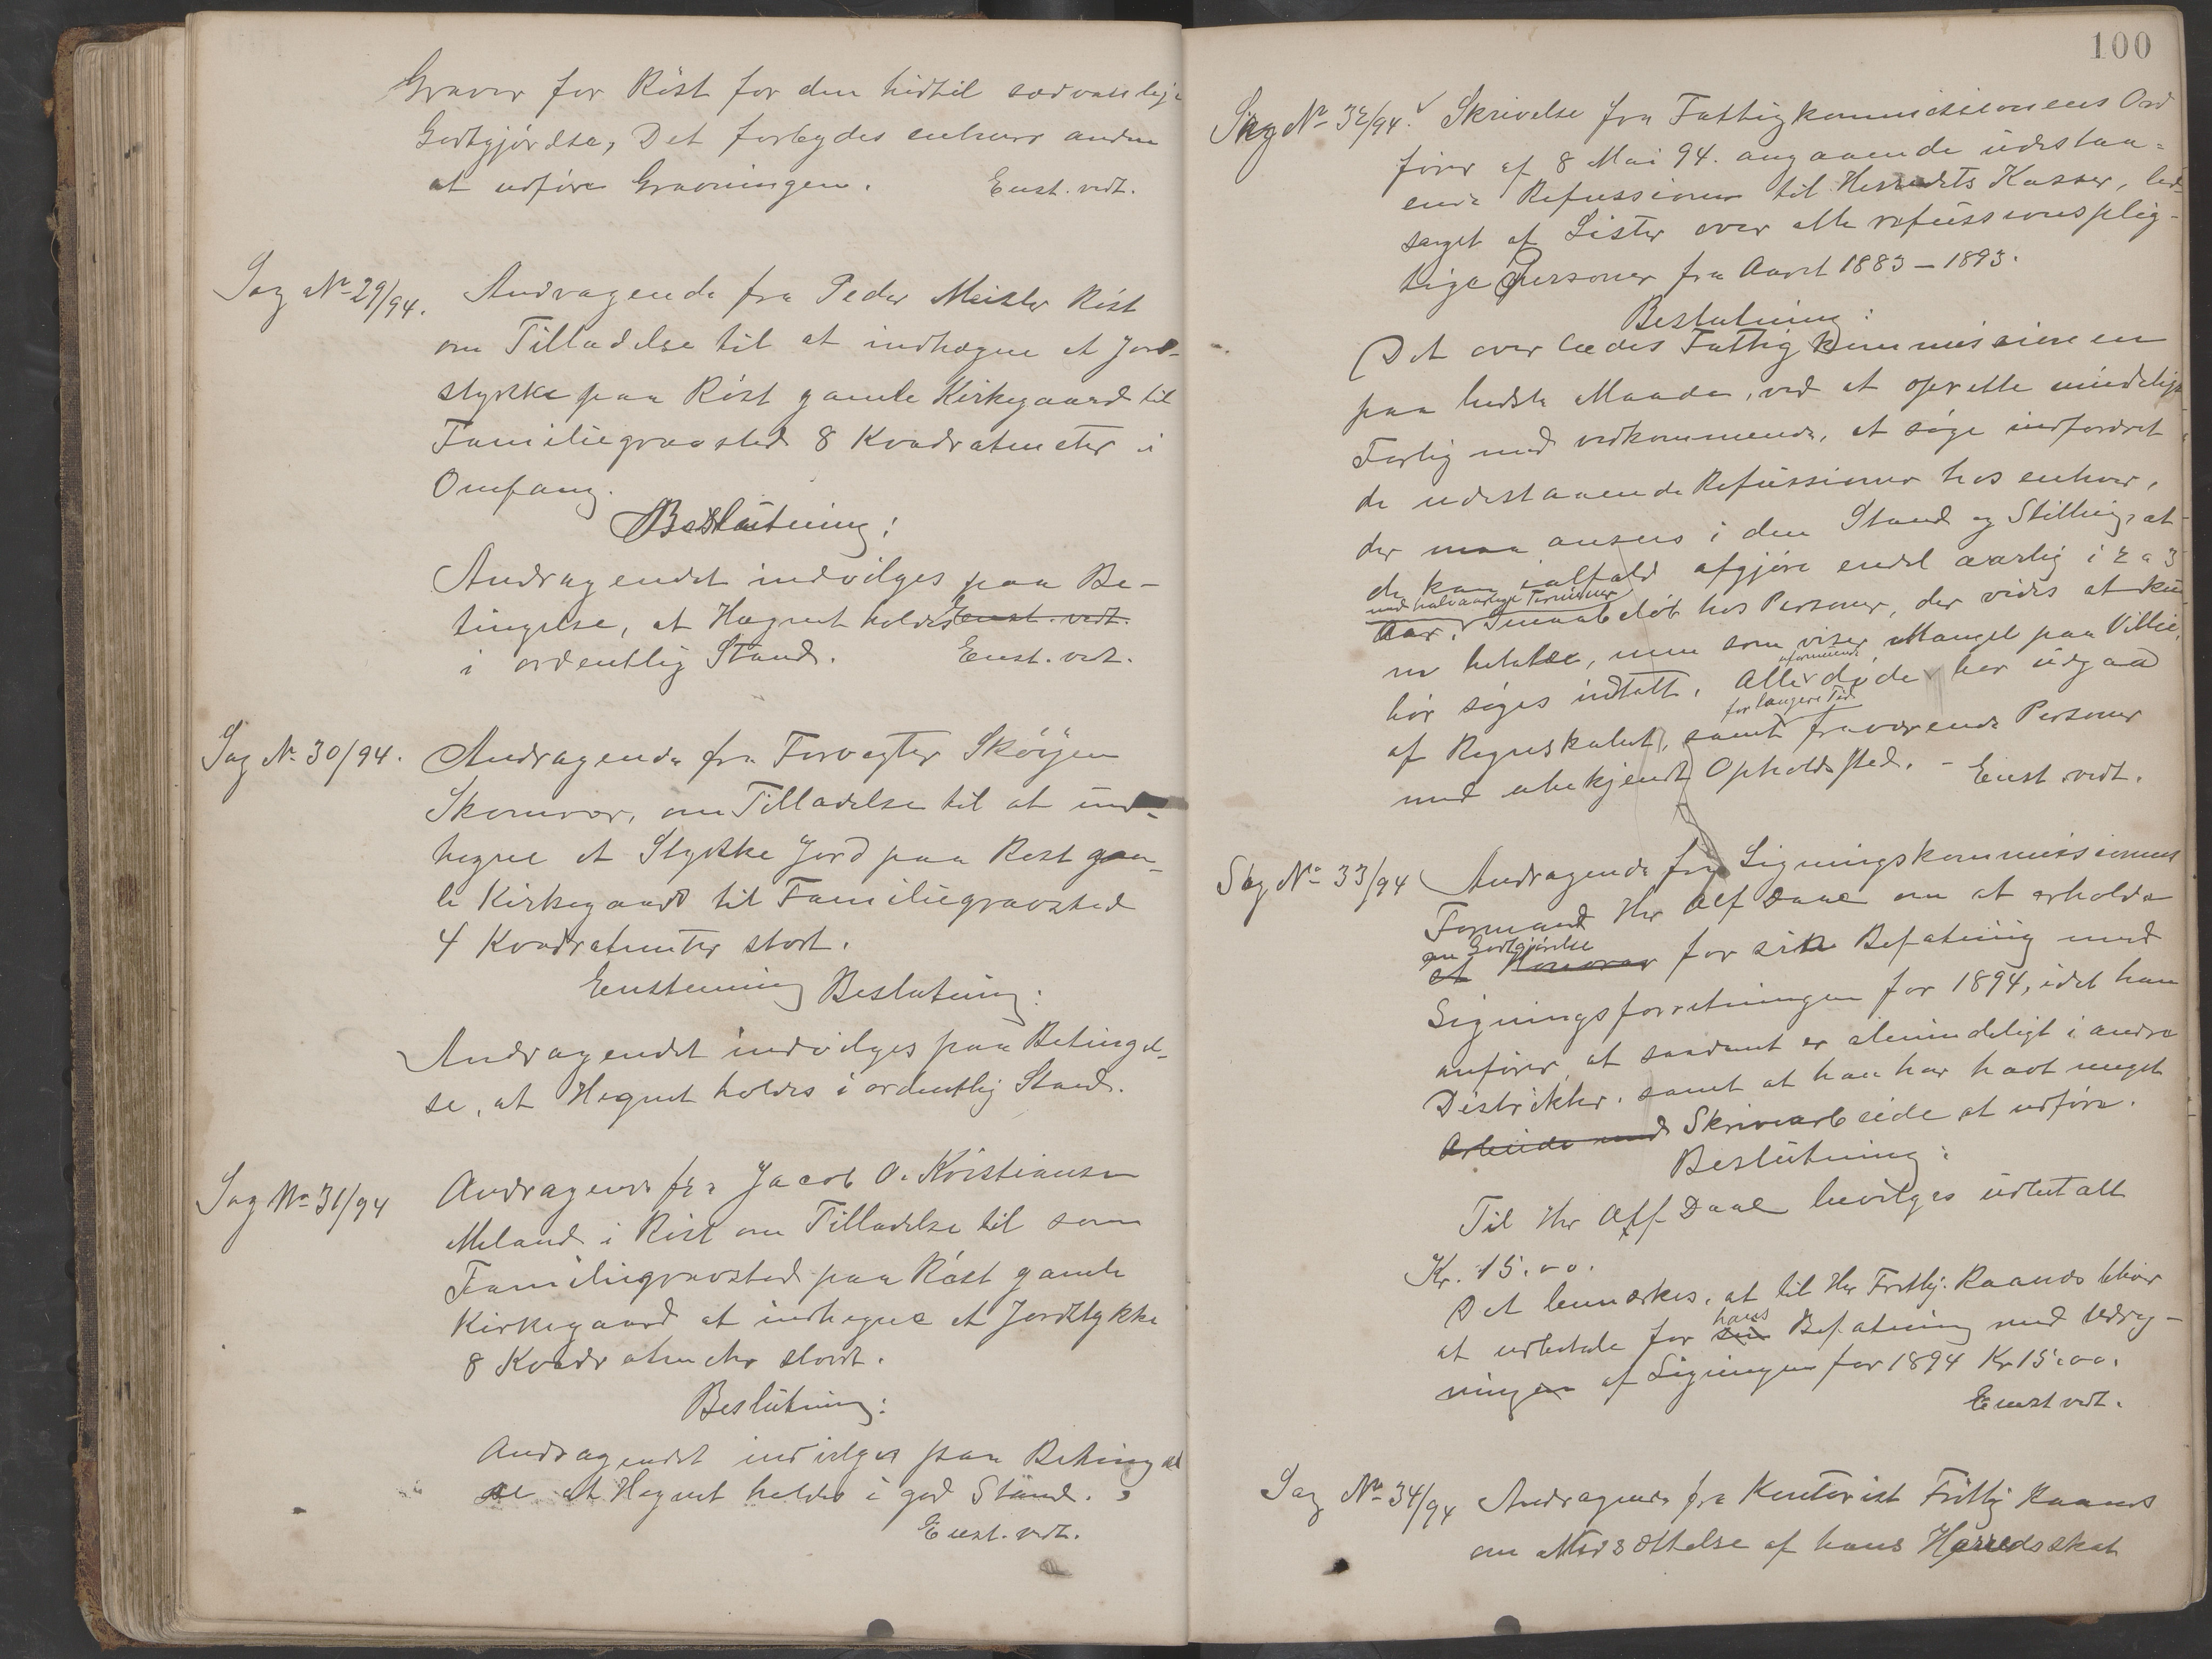 Graver for Röst for den hidtil sædvanlige
Godtgjörelse, Det forbydes enhver anden
at udföre Gravningen. Enst. vedt.
Sag No 29/94. Andragende fra Peder Meisler Röst
om Tilladelse til at indhegne et Jord-
stykke paa Röst gamle Kirkegaard til
Familiegravsted 8 Kvadratmeter i
Omfang.
Beslutning:
Andragendet indvilges paa Be-
tingelse, at Hegnet holdes Enst. vedt.
i ordentlig Stand. Enst. vedt.
Sag No 30/94. Andragende fra Forvagter Skörjen
Skomvær, om Tilladelse til at ind-
hegne et Stykke Jord paa Röst gam-
le Kirkegaard til Familiegravsted
4 Kvadratmeter stort.
Enstemmig Beslutning:
Andragendet indvilges paa Betingel-
se, at Hegnet holdes i ordentlig Stand.
Sag No 31/94 Andragende fra Jacob O. Kristiansen
Meland i Röst om Tilladelse til som
Familiegravsted paa Röst gamle
Kirkegaard at indhegne et Jordstykke
8 Kvadratmeter stort.
Beslutning:
Andragendet indvilges paa Betingel
se at Hegnet holdes i god Stand.
Enst. vedt.
100
Sag No 32/94. Skrivelse fra Fattigkommissionens Ord
förer af 8 Mai 94. angaaende udestaa-
ende Refusioner til Herredets Kasser, led-
saget af Lister over alle refusionsplig-
tige Personer fra Aaret 1883-1893.
Beslutning:
Det overlades Fattigkommissionen
paa bedste Maade, ved at oprette mindelige
Forlig med vedkommende, at söge indfordret
de udestaaende Refusioner hos enhver,
der maa ansees i den Stand og Stilling, at
de kan ialfald afgjöre endel aarlig i 2 a 3
med halvaarlige Terminer
Aar. Smaabelöb hos Personer, der vides at kun
ne betale, men som viser Mangel paa Villie,
bör söges indtalt. Alle döde bör udgaa
uformuende
for længere Tid
af Regnskabet, samt fraværende Personer
med ubekjendt Opholdssted. - Enst. vedt.
Sag No 33/94 Andragende fra Ligningskommissionens
Formand Hr Alf Daae om at erholde
en Godtgjörelse
et Honorar for sin Befatning med
Ligningsforretningen for 1894, idet han
anförer, at saadant er almindeligt i andre
Distrikter, samt at han har havt meget
Arbeide med Skrivearbeide at udföre.
Beslutning:
Til Hr Alf Daae bevilges udbetalt
Kr. 15.00.
Det bemærkes, at til Hr Frithj. Raands blior
at udbetale for sin hans Befatning med Udreg-
ningen af Ligningen for 1894 Kr 15.00.
Enst vedt.
Sag No 34/94 Andragende fra Kontorist Frithj Raands
om Nedsættelse af hans Herredsskat